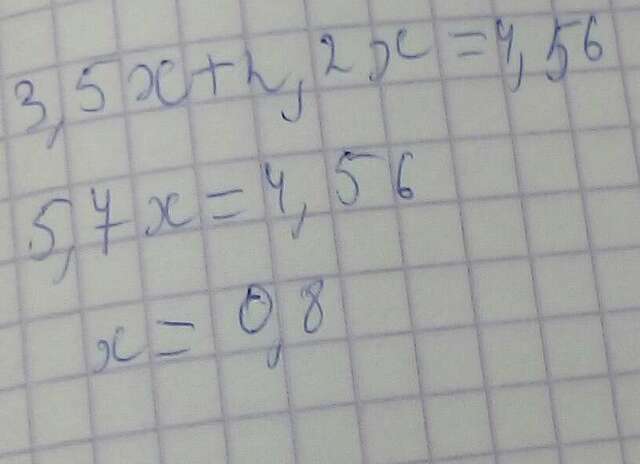 3,5x+2,2x=4,56
5,7x=4,56
x=0,8